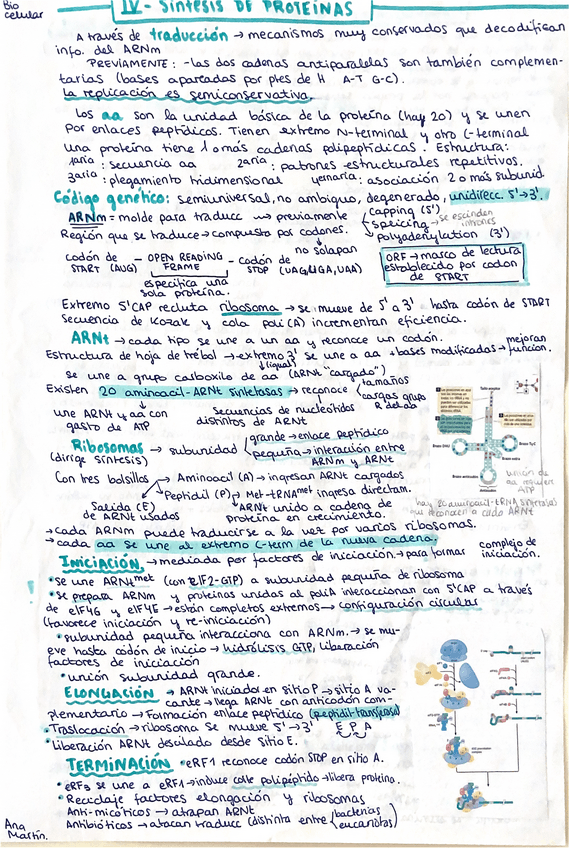 Bio celular
IV- SÍNTESIS DE PROTEÍNAS
A través de traducción → mecanismos muy conservados que decodifican
info. del ARNm
PREVIAMENTE: -las dos cadenas antiparalelas son también complemen-
tarias (bases apareadas por ptes de H A-T G-C).
La replicación es semiconservativa.
Los aa son la unidad básica de la proteína (hay 20) y se unen
por enlaces peptídicos. Tienen extremo N-terminal y otro C-terminal
una proteína tiene 1 o más cadenas polipeptídicas. Estructura:
1aria: secuencia aa 2aria: patrones estructurales repetitivos.
3aria: plegamiento tridimensional 4naria: asociación 2 o más subunid.
Código genético: semiuniversal, no ambiguo, degenerado, unidirecc. 5'→3'.
ARNm = molde para traducc → previamente
Capping (5')
Splicing → se escinden intrones
Polyadenylation (3')
Región que se traduce → compuesta por codones.
no solapan
codón de START (AUG) - OPEN READING FRAME - codón de STOP (UAG, UGA, UAA)
especifica una sola proteína.
ORF → marco de lectura
establecido por codón
de START
Extremo 5'CAP recluta ribosoma → se mueve de 5' a 3' hasta codón de START
Secuencia de Kozak y cola poli(A) incrementan eficiencia.
ARNt → cada tipo se une a un aa y reconoce un codón.
Estructura de hoja de trébol → extremo 3' se une a aa + bases modificadas → mejoran función.
(igual)
se une a grupo carboxilo de aa (ARNt "cargado")
Existen 20 aminoacil-ARNt sintetasas → reconoce
tamaños
cargas grupo
R del aa
une ARNt y aa con
gasto de ATP
Secuencias de nucleótidos
distintos de ARNt
Ribosomas → subunidad
(dirige síntesis)
grande → enlace peptídico
pequeña → interacción entre
ARNm y ARNt
Con tres bolsillos
Aminoacil (A) → ingresan ARNt cargados
Peptidil (P) → Met-tRNAmet ingresa directam.
ARNt unido a cadena de
proteína en crecimiento.
Salida (E)
de ARNt usados
unión de
aa requiere
ATP
hay 20 aminoacil-tRNA sintetasas
que reconocen a cada ARNt
→ cada ARNm puede traducirse a la vez por varios ribosomas.
→ cada aa se une al extremo C-term de la nueva cadena.
INICIACIÓN → mediada por factores de iniciación → para formar complejo de iniciación.
• se une ARNt met (con eIF2-GTP) a subunidad pequeña de ribosoma
• se prepara ARNm y proteínas unidas al poliA interaccionan con 5'CAP a través
de eIF4G y eIF4E → están completos extremos → configuración circular
(favorece iniciación y re-iniciación)
• subunidad pequeña interacciona con ARNm. → se mu-
eve hasta codón de inicio → hidrólisis GTP, liberación
factores de iniciación
• unión subunidad grande.
ELONGACIÓN → ARNt iniciador en sitio P → sitio A va-
cante → llega ARNt con anticodón com-
plementario → Formación enlace peptídico (peptidil-transferasa)
• Traslocación → ribosoma se mueve 5'→3' E P A
• liberación ARNt desacilado desde sitio E.
TERMINACIÓN • eRF1 reconoce codón STOP en sitio A.
• eRF3 se une a eRF1 → induce corte polipéptido → libera proteína.
• Reciclaje factores elongación y ribosomas
Anti-micóticos → atrapan ARNt
Antibióticos → atacan traducc (distinta entre bacterias eucariotas)
Ana
Martín.